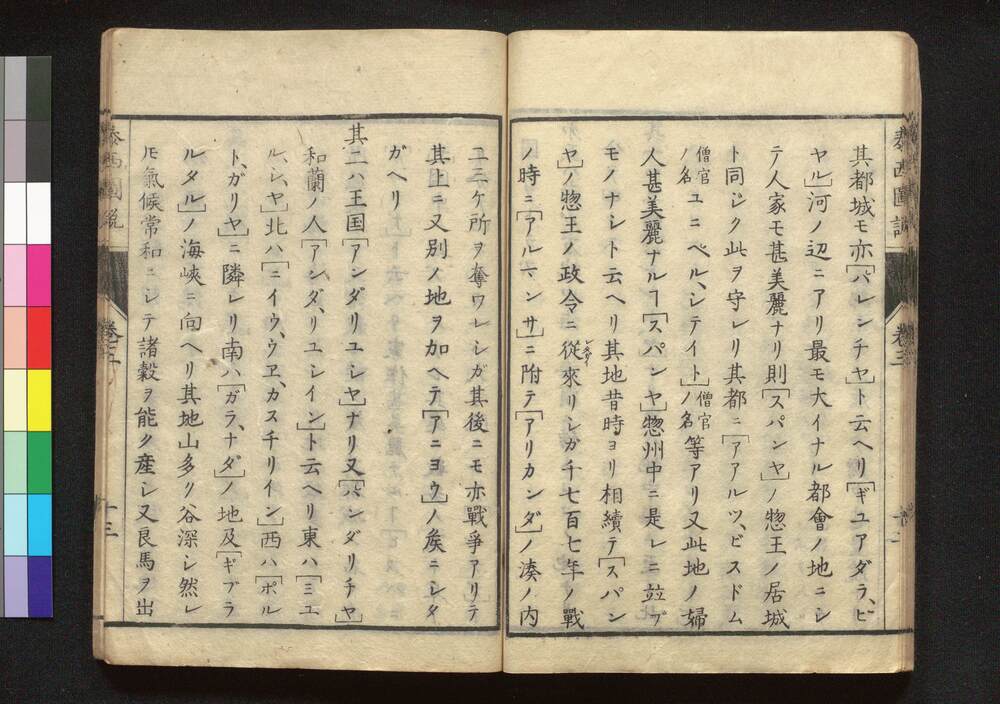 泰西圖說
卷三
其都城モ亦「バレンチヤ」ト云ヘリ「ギユアダラ、ビ
ヤル」河ノ辺ニアリ最モ大イナル都會ノ地ニシ
テ人家モ甚美麗ナリ則「スパンヤ」ノ惣王ノ居城
ト同シク此ヲ守レリ其都ニ「アアルツ、ビスドム
僧官ノ名ユニベル、シテイト」僧官ノ名等アリ又此地ノ婦
人甚美麗ナルヿ「スパンヤ」惣州中ニ是レニ並フ
モノナシト云ヘリ其地昔時ヨリ相續テ「スパン
ヤ」ノ惣王ノ政令ニ從來リシガ千七百七年ノ戰
ノ時ニ「アルマンサ」ニ附テ「アリカンダ」ノ湊ノ内
二三ケ所ヲ奪ワレシガ其後ニモ亦戰爭アリテ
其上ニ又別ノ地ヲ加ヘテ「アニヨウ」ノ矦ニシタ
ガヘリ
其二ハ王国「アンダリユシヤ」ナリ又「バンダリチヤ」
和蘭ノ人「アンダ、リユシイン」ト云ヘリ東ハ「ミユ
ル、シヤ」北ハ「ニイウ、ウヱ、カスチリイン」西ハ「ポル
ト、ガリヤ」ニ隣レリ南ハ「ガラ、ナダ」ノ地及「ギブラ
ルタル」ノ海峽ニ向ヘリ其地山多ク谷深シ然レ
𪜈氣候常和ニシテ諸穀ヲ能ク産シ又良馬ヲ出
泰西圖說
卷三
十三